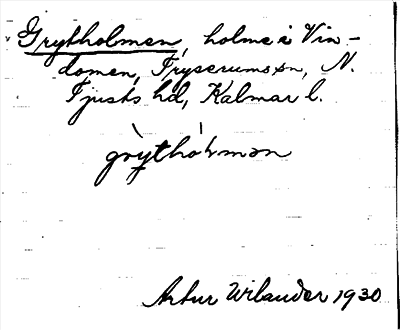 Grytholmen, holme i Vin-
domen, Tryserums sn, N.
Tjusts hd, Kalmar l.
Artur Wilander 1930